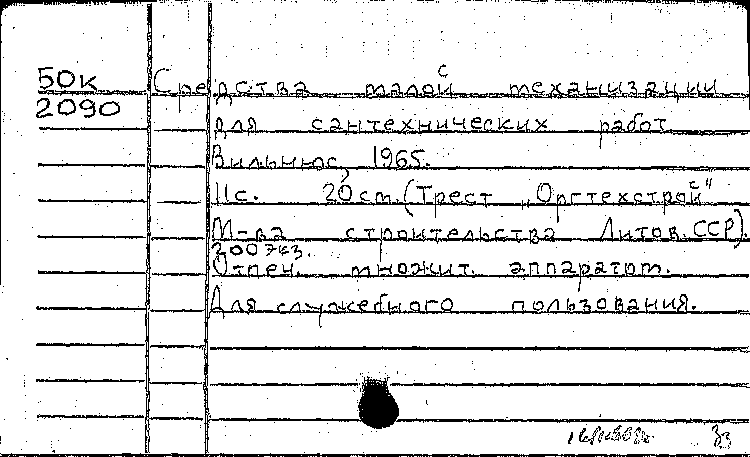 50к Средства малой механизации
2090
для сантехнических работ
Вильнюс, 1965.
11с. 20см. (Трест "Оргтехстрой"
М-ва строительства Литов. ССР).
300 экз.
Отпеч. множит. аппаратом.
Для служебного пользования.